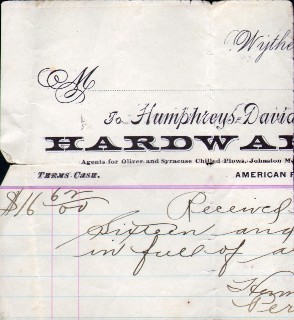 Wythe
M
To Humphreys-David
HARDWA
Agents for Oliver and Syracuse Chilled Plows, Johnston M
TERMS CASH. AMERICAN F
$16 62/00 Received
Sixteen and
in full of a
Per